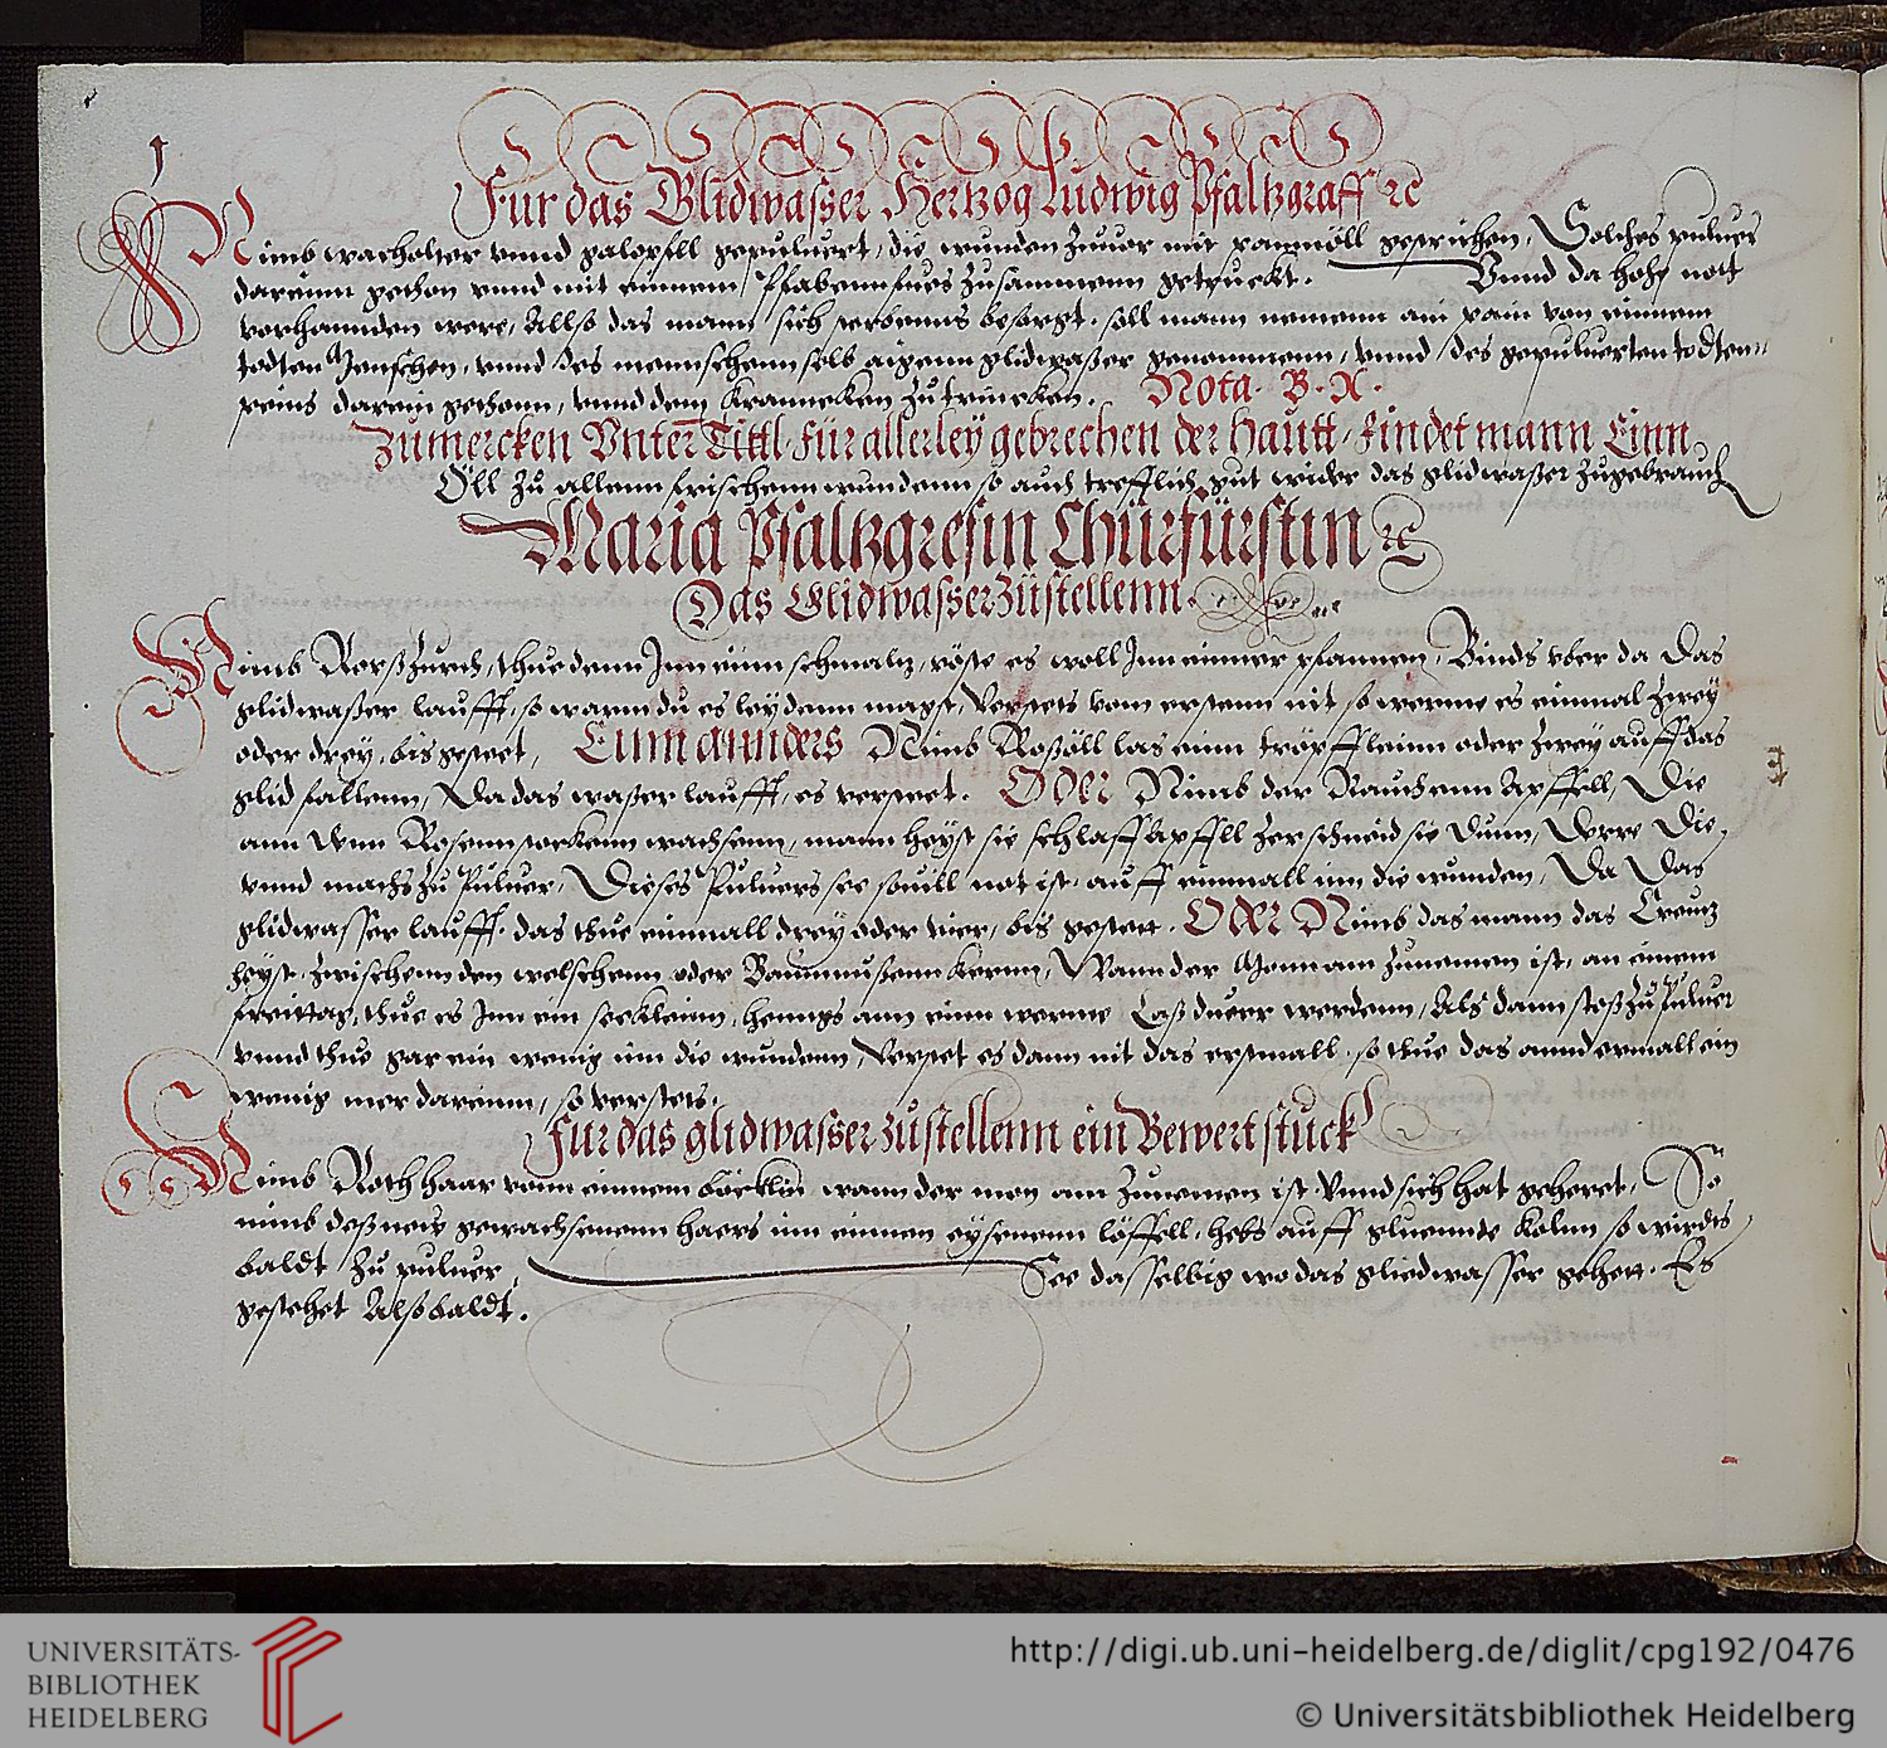 Für das Glidwasser Hertzog Ludwig Pfaltzgraff rc
Nimb wacholter vnnd galopfell gepuluert, die wunden zuuor mit paumöll gestrichen, Solches puluer
darinnn gethon vnnd mit einnem Pfabenn zusammenn getruckt. Vnnd da hohe nott
vorhannden were, Allso das mann sich sterbenns besorgt. soll mann nemenn ain pain von einnem
todten Menschen, vnnd des mennschenn selb aigenn glidwaßer genommenn, vnnd des gepuluerten todten
peins darein gethonn, vnnd dem Krannecken zu trincken. Nota. B. N.
Zumercken Vnter Tittl. für allerley gebrechen der hautt, findet mann Einn
Öll zu allenn frischenn wundenn so auch trefflich gut wider das glidwaßer zugebrauch
Maria Pfaltzgrefin Chürfürstin rc
Das Glidwasser züstellenn.
Nimb thue denn Inn einn schmaltz, röste es woll Inn einner pfannen, Binds vber da das
glidwaßer laufft, so warm du es leydenn magst, vom erstenn nit so werme es einmal zwey
oder drey, bis gestet, Einn annders Nimb Roßöll las einn tröpffleinn oder zwey auff das
glid fallenn, Da das waßer laufft, es verstet. Oder Nimb der Rauchenn Apffell, Die
ann denn Rosenn stockenn wachsenn, mann heyst sie schlaff Apffell zerschneid sie dünn, derre die
vnnd machs zu Puluer, Dieses Puluers see souill not ist, auff einmall inn die wunden, Da Das
glidwasser laufft. das thue einmall drey oder vier, bis gestett. Oder Nimb das mann das Creutz
heyst. zwischenn den welschenn oder Baumnußenn kernn, Wann der Monn am zunemen ist, an einem
freittag, thue es Inn ein seckleinn, henngs ann einn werme Laß durr werdenn, Als dann stoß zu Puluer
vnnd thue gar ein wenig inn die wundenn, Verstet es dann nit das erstmall. so thue das anndermall ein
wenig mer dareinn, so verstets.
Für das glidwasser zustellenn ein Bewert stuck
Nimb Roth haar vonn einnem böcklin wann der mon am zunemen ist. Vnnd sich hat geheret, So
nimb deß neüs gewachsenenn haars inn einnen eysenenn löffell, hebs auff gluennde kolnn so wirdts
baldt zu puluer, See dasselbig wo das gliedwasser gehett. Es
gestehet Alsobaldt.
UNIVERSITÄTS-
BIBLIOTHEK
HEIDELBERG
http://digi.ub.uni-heidelberg.de/diglit/cpg192/0476
© Universitätsbibliothek Heidelberg